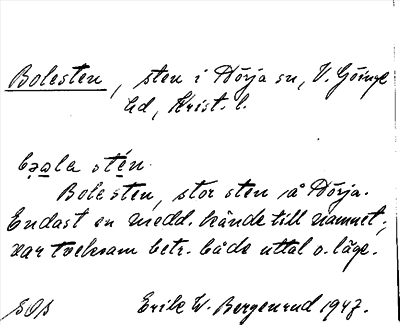 Bolesten, sten i Nörja sn, V. Göinge
hd, Krist. l.
bọala stén.
Bolesten, stor sten å Nörja.
Endast en medd. kände till namnet,
var tveksam betr. både uttal o. läge.
Erik W. Bergenrud 1947.